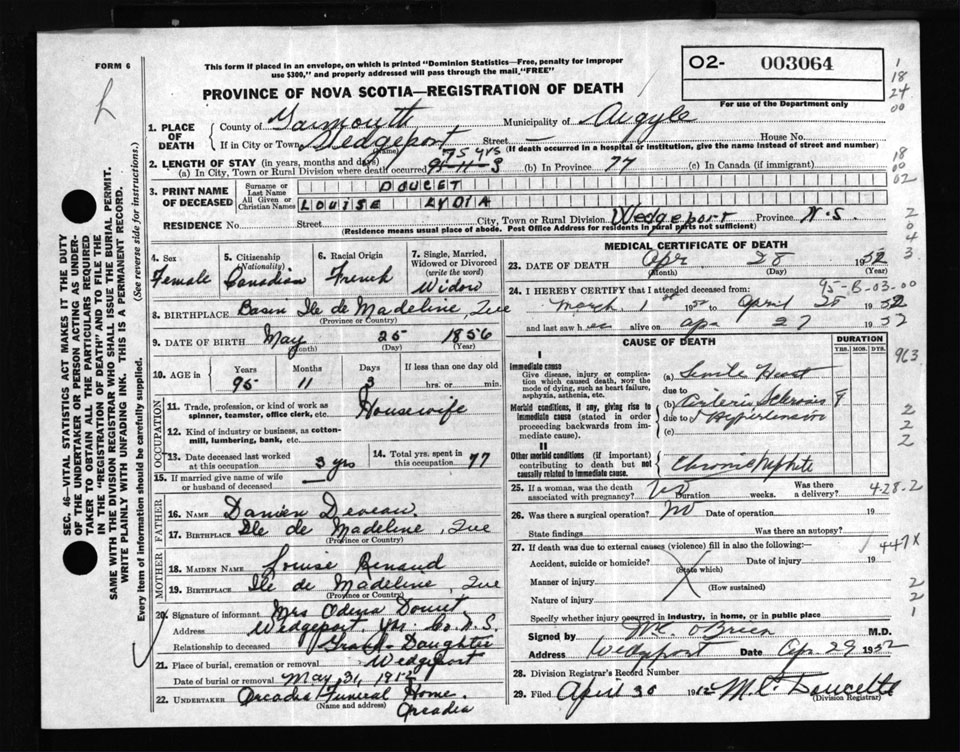 FORM 6
This form if placed in an envelope, on which is printed "Dominion Statistics—Free, penalty for improper
use $300," and properly addressed will pass through the mail, "FREE"
PROVINCE OF NOVA SCOTIA—REGISTRATION OF DEATH
O2- 003064
For use of the Department only
1
18
24
00
1. PLACE OF DEATH
County of Yarmouth Municipality of Argyle
If in City or Town Wedgeport Street — House No.
(Name) (If death occurred in a hospital or institution, give the name instead of street and number)
2. LENGTH OF STAY (in years, months and days) 75 yrs
(a) In City, Town or Rural Division where death occurred 95-11-3 (b) In Province 77 (c) In Canada (if immigrant)
18
00
02
3. PRINT NAME OF DECEASED
Surname or Last Name DOUCET
All Given or Christian Names LOUISE LYDIA
RESIDENCE No. Street City, Town or Rural Division Wedgeport Province N.S.
(Residence means usual place of abode. Post Office Address for residents in rural parts not sufficient)
2
0
4
3
4. Sex
Female
5. Citizenship (Nationality)
Canadian
6. Racial Origin
French
7. Single, Married, Widowed or Divorced (write the word)
Widow
8. BIRTHPLACE Basin Ile de Madeline, Que
(Province or Country)
9. DATE OF BIRTH May 25 1856
(Month) (Day) (Year)
10. AGE in Years Months Days If less than one day old
95 11 3 hrs. or min.
OCCUPATION
11. Trade, profession, or kind of work as
spinner, teamster, office clerk, etc. Housewife
12. Kind of industry or business, as cotton-
mill, lumbering, bank, etc.
13. Date deceased last worked
at this occupation 3 yrs
14. Total yrs. spent in
this occupation 77
15. If married give name of wife
or husband of deceased
FATHER
16. NAME Damien Deveau
17. BIRTHPLACE Ile de Madeline, Que
(Province or Country)
MOTHER
18. MAIDEN NAME Louise Benaud
19. BIRTHPLACE Ile de Madeline, Que
(Province or Country)
20. Signature of informant Mrs Doucet
Address Wedgeport, Yar. Co. N.S.
Relationship to deceased Grand-Daughter
21. Place of burial, cremation or removal Wedgeport
Date of burial or removal May 31, 1952
22. UNDERTAKER Arcadia Funeral Home.
(Name and address) Arcadia
MEDICAL CERTIFICATE OF DEATH
23. DATE OF DEATH Apr 28 1952
(Month) (Day) (Year)
95-B-03-00
24. I HEREBY CERTIFY that I attended deceased from:
March 1st 1952 to April 28 1952
and last saw her alive on Ap. 27 1952
CAUSE OF DEATH
DURATION
YRS. MOS. DYS.
963
I
Immediate cause
Give disease, injury or complica-
tion which caused death, NOT the
mode of dying, such as heart failure,
asphyxia, asthenia, etc.
(a) Senile Heart
due to
Morbid conditions, if any, giving rise to
immediate cause (stated in order
proceeding backwards from im-
mediate cause).
(b) Arterio Sclerosis 8
due to & Hypertension
(c)
2
2
2
II
Other morbid conditions (if important)
contributing to death but not
causally related to immediate cause.
Chronic Nephritis
25. If a woman, was the death
associated with pregnancy? No Duration weeks. Was there
a delivery?
4-28-2
26. Was there a surgical operation? No Date of operation 19
State findings Was there an autopsy?
27. If death was due to external causes (violence) fill in also the following:—
447X
Accident, suicide or homicide? Date of injury 19
(State which)
Manner of injury
(How sustained)
Nature of injury
2
2
1
Specify whether injury occurred in industry, in home, or in public place
Signed by O'Brien M.D.
Address Wedgeport Date Apr. 29 1952
28. Division Registrar's Record Number
29. Filed April 30 1952 Doucette
(Division Registrar)
SEC. 46—VITAL STATISTICS ACT MAKES IT THE DUTY
OF THE UNDERTAKER OR PERSON ACTING AS UNDER-
TAKER TO OBTAIN ALL THE PARTICULARS REQUIRED
IN THE "REGISTRATION OF DEATH" AND TO FILE THE
SAME WITH THE DIVISION REGISTRAR WHO SHALL ISSUE THE BURIAL PERMIT.
WRITE PLAINLY WITH UNFADING INK. THIS IS A PERMANENT RECORD.
Every item of information should be carefully supplied. (See reverse side for instructions.)